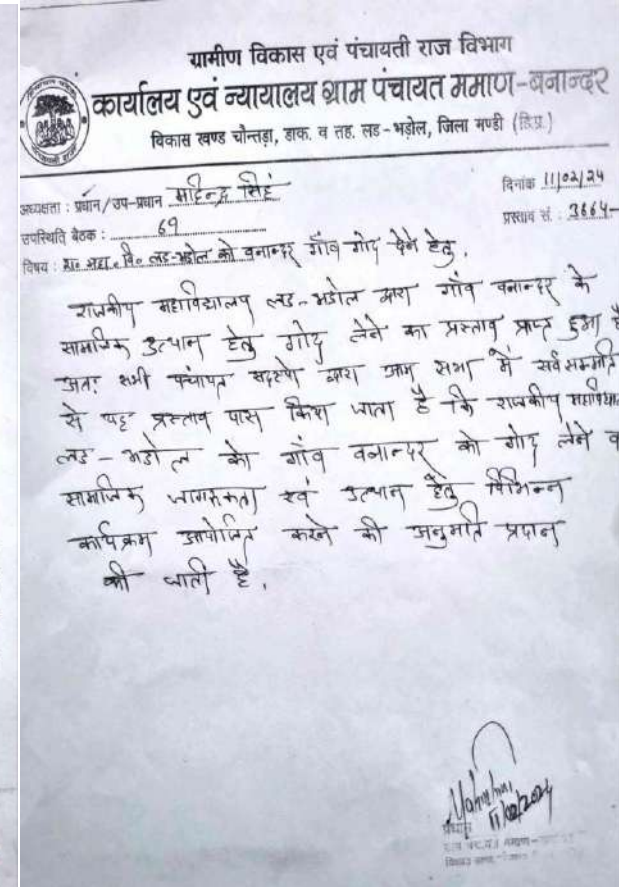 ग्रामीण विकास एवं पंचायती राज विभाग
कार्यालय एवं न्यायालय ग्राम पंचायत ममाण-बनान्दर
विकास खण्ड चौन्तड़ा, डाक. व तह. लड-भड़ोल, जिला मण्डी (हि.प्र.)
दिनांक 11/02/24
अध्यक्षता : प्रधान/उप-प्रधान महिन्द्र सिंह
प्रस्ताव सं. : 3664-
उपस्थिति बैठक : 69
विषय : रा० महा. वि० लड-भड़ोल को बनान्दर गाँव गोद देने हेतु.
राजकीय महाविद्यालय लड-भडोल द्वारा गाँव बनान्दर के
सामाजिक उत्थान हेतु गोद लेने का प्रस्ताव प्राप्त हुआ है
अतः सभी पंचायत सदस्यो द्वारा आम सभा में सर्वसम्मति
से यह प्रस्ताव पास किया जाता है कि राजकीय महाविद्या
लड-भडोल को गाँव बनान्दर को गोद लेने व
सामाजिक जागरूकता एवं उत्थान हेतु विभिन्न
कार्यक्रम आयोजित करने की अनुमति प्रदान
की जाती है.
11/02/2024
प्रधान